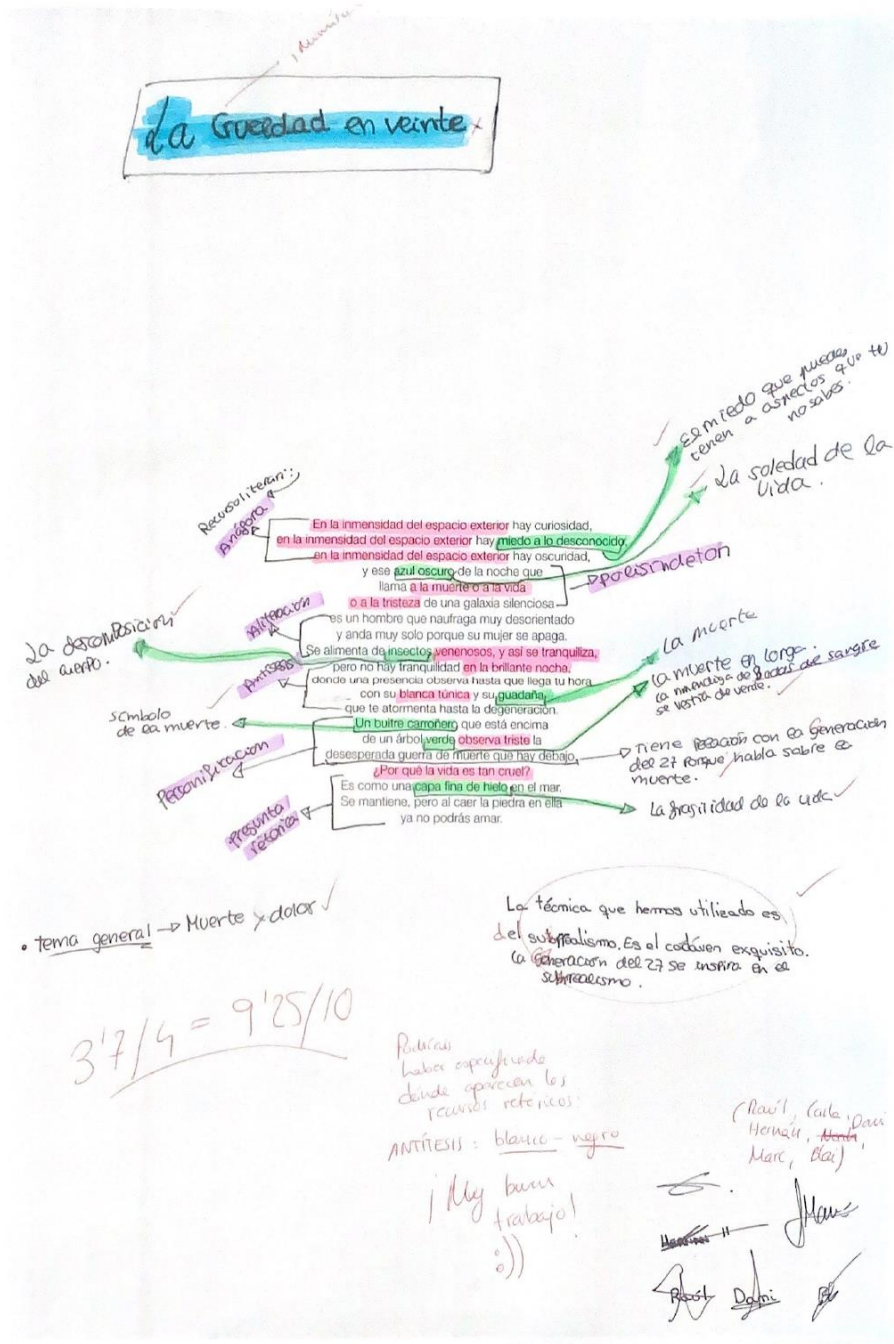 La Gueedad en veinte
El miedo que puedes
tener a aspectos que tu
no sabes.
La soledad de la
vida.
Recurso literari:
Anáfora
En la inmensidad del espacio exterior hay curiosidad,
en la inmensidad del espacio exterior hay miedo a lo desconocido,
en la inmensidad del espacio exterior hay oscuridad,
y ese azul oscuro de la noche que
llama a la muerte o a la vida
o a la tristeza de una galaxia silenciosa
es un hombre que naufraga muy desorientado
y anda muy solo porque su mujer se apaga.
Se alimenta de insectos venenosos, y así se tranquiliza,
pero no hay tranquilidad en la brillante noche.
donde una presencia observa hasta que llega tu hora
con su blanca túnica y su guadaña,
que te atormenta hasta la degeneración.
Un buitre carroñero que está encima
de un árbol verde observa triste la
desesperada guerra de muerte que hay debajo,
¿Por qué la vida es tan cruel?
Es como una capa fina de hielo en el mar.
Se mantiene, pero al caer la piedra en ella
ya no podrás amar.
polisindeton
Aliteración
La descomposición
del cuerpo.
Antítesis
La muerte
La muerte en Lorca.
de sangre
se vestía de verde.
símbolo
de la muerte.
Personificación
Tiene relación con la Generación
del 27 porque habla sobre la
muerte.
pregunta
retorica
La fragilidad de la vida
• tema general → Muerte y dolor
La técnica que hemos utilizado es
del subrrealismo. Es el cadáver exquisito.
La Generación del 27 se inspira en el
subrrealismo.
3'7/4 = 9'25/10
Podríais
haber especificado
dónde aparecen los
recursos retóricos.
ANTÍTESIS: blanco - negro
¡My buen
trabajo!
:))
(Raúl, Carla, Dani
Hernán,
Marc, Blai)
Marc
Raúl Dani